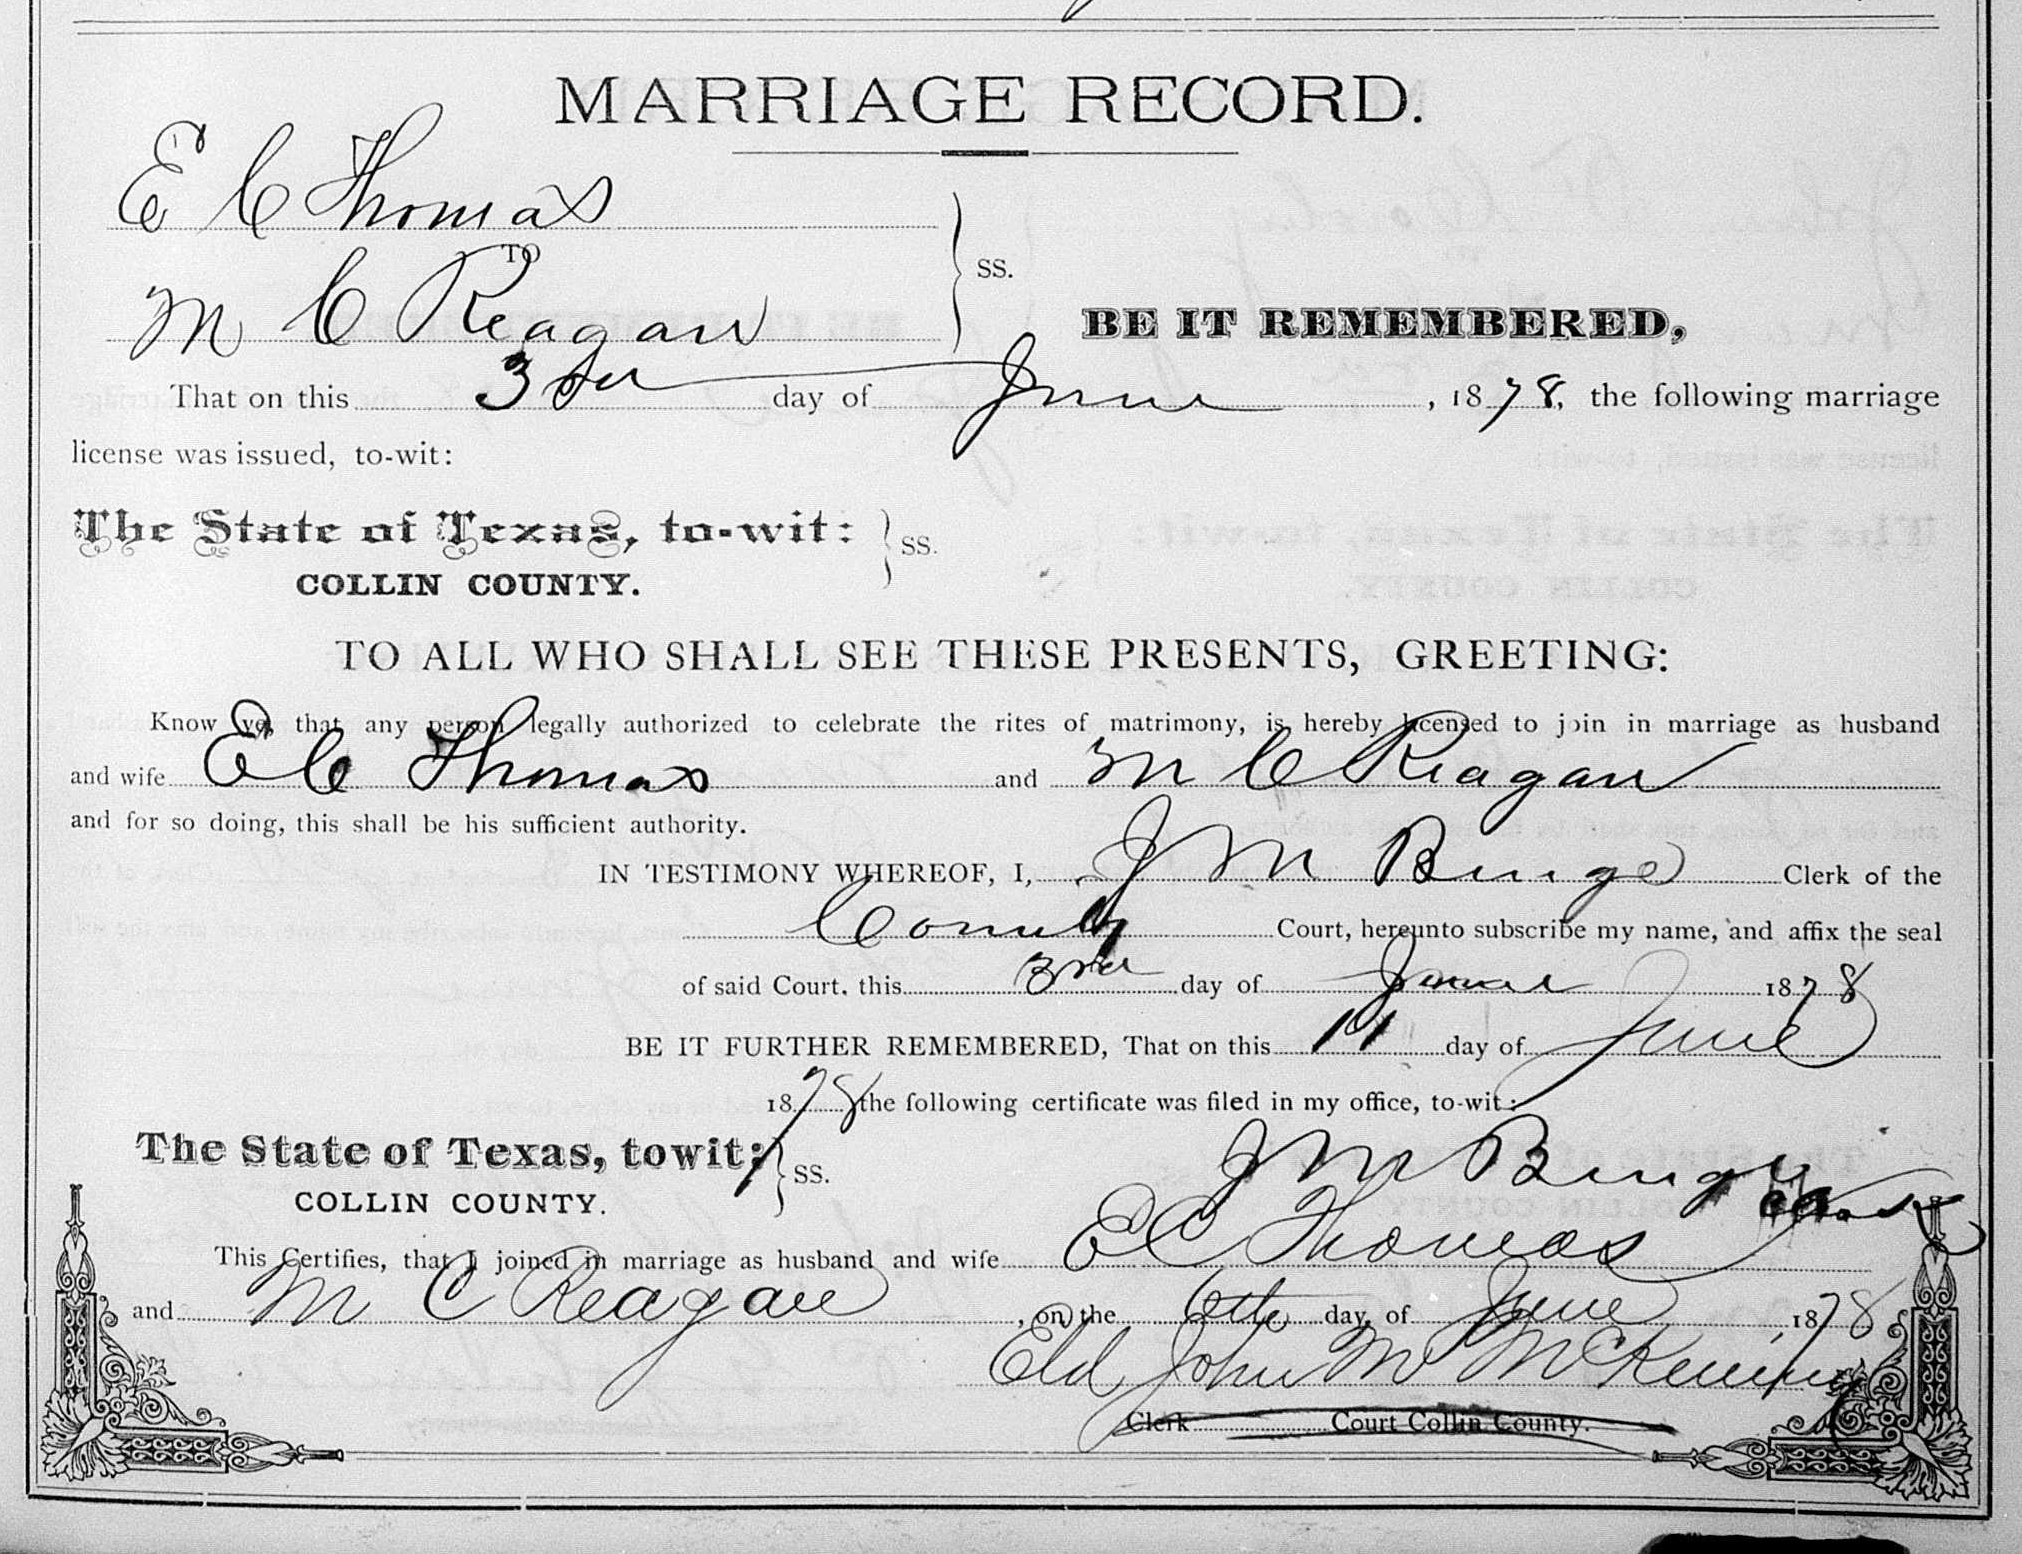 MARRIAGE RECORD.
E C Thomas
TO
M C Reagan
SS.
BE IT REMEMBERED,
That on this 3rd day of June, 1878, the following marriage
license was issued, to-wit:
The State of Texas, to-wit:
SS.
COLLIN COUNTY.
TO ALL WHO SHALL SEE THESE PRESENTS, GREETING:
Know ye, that any person legally authorized to celebrate the rites of matrimony, is hereby licensed to join in marriage as husband
and wife E C Thomas and M C Reagan
and for so doing, this shall be his sufficient authority.
IN TESTIMONY WHEREOF, I, J M Benge Clerk of the
County Court, hereunto subscribe my name, and affix the seal
of said Court, this 3rd day of June 1878
BE IT FURTHER REMEMBERED, That on this 11 day of June
1878 the following certificate was filed in my office, to-wit:
J M Benge
The State of Texas, towit:
SS.
COLLIN COUNTY.
This Certifies, that I joined in marriage as husband and wife E C Thomas
and M C Reagan, on the 6th day of June 1878
Eld John M
Clerk Court Collin County.